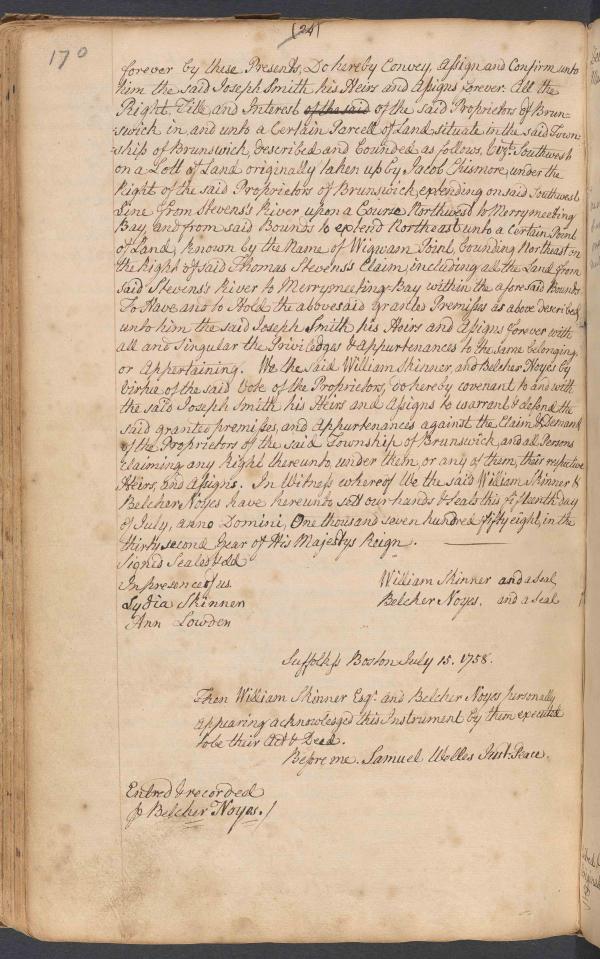 170
(24)
forever by these Presents, Do hereby Convey, Assign and Confirm unto
him the said Joseph Smith his Heirs and Assigns forever. All the
Right, Title, and Interest of the said of the said Proprietors of Brun=
=swick in and unto a Certain Parcell of Land situate in the said Town=
=ship of Brunswick, described and bounded as follows, Vizt. Southwest
on a Lott of Land originally taken up by Jacob Chismore, under the
Right of the said Proprietors of Brunswick, extending on said Southwest
Line from Stevens's River upon a Course Northwest to Merrymeeting
Bay, and from said Bounds to extend Northeast unto a Certain Point
of Land, known by the Name of Wigwam Point, bounding Northeast on
the Right of said Thomas Stevens's Claim, including all the Land from
said Stevens's River to Merrymeeting Bay within the aforesaid Bounds
To Have and to Hold the abovesaid granted Premisses as above described
unto him the said Joseph Smith his Heirs and Assigns forever with
all and Singular the Priviledges & Appurtenances to the same belonging
or Appertaining. We the said William Skinner, and Belcher Noyes by
Virtue of the said Vote of the Proprietors, do hereby covenant to and with
the said Joseph Smith his Heirs and Assigns to warrant & defend the
said granted premisses, and Appurtenances against the Claim & Demand
of the Proprietors of the said Township of Brunswick, and all Persons
claiming any Right thereunto, under them, or any of them, their respective
Heirs, and Assigns. In Witness whereof We the said William Skinner &
Belcher Noyes have hereunto sett our hands & Seals this fifteenth day
of July, anno Domini, One thousand seven hundred fifty eight, in the
thirty second Year of His Majestys Reign.
Signed Sealed & dd
In presence of us
William Skinner and a Seal
Lydia Skinner
Belcher Noyes. and a Seal
Ann Lowden
Suffolk ss Boston July 15. 1758.
Then William Skinner Esqr. and Belcher Noyes personally
appearing acknowledged this Instrument by them executed
to be their Act & Deed.
Before me. Samuel Welles Just: Peace.
Entred & recorded
p Belcher Noyes./